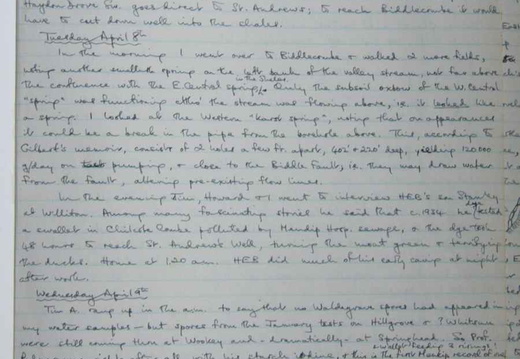 Haydon Grove Sw. goes direct to St. Andrews; to reach Biddlecombe it would
have to cut down well into the shales.
Tuesday April 8th
In the morning I went over to Biddlecombe & walked 2 more fields,
noting another smallish spring on the left bank of the valley stream, not far above
the confluence with the E. Central spring, in the shales. Only the subsoil oxbow of the W. Central
"spring" was functioning altho' the stream was flowing above, i.e. it looked like
a spring. I looked at the Western "karst spring", noting that on appearances
it could be a break in the pipe from the borehole above. This, according to
Gilbert's memoir, consists of 2 holes a few ft. apart, 402' & 220' deep, yielding 120000
g/day on test pumping, & close to the Biddle Fault, i.e. they may draw water
from the fault, altering pre-existing flow lines.
In the evening Jim, Howard & I went to interview HEB's son Stanley
at Williton. Among many fascinating stories he said that c.1934 he
a swallet in Chilcote polluted by Mendip Hosp. sewage, & the dye took
48 hours to reach St. Andrew's Well, turning the moat green & terrifying
the ducks. Home at 1.20 am. HEB did much of his early caving at night
after work.
Wednesday April 9th
Tim A. rang up in the a.m. to say that no Waldegrave spores had appeared in
my water samples - but spores from the January tests on Hillgrove & ? Whitsun
were still coming thru at Wookey and - dramatically - at Springhead. So Prof.
swallet feeding 2 risings!
this is the first Mendip record of